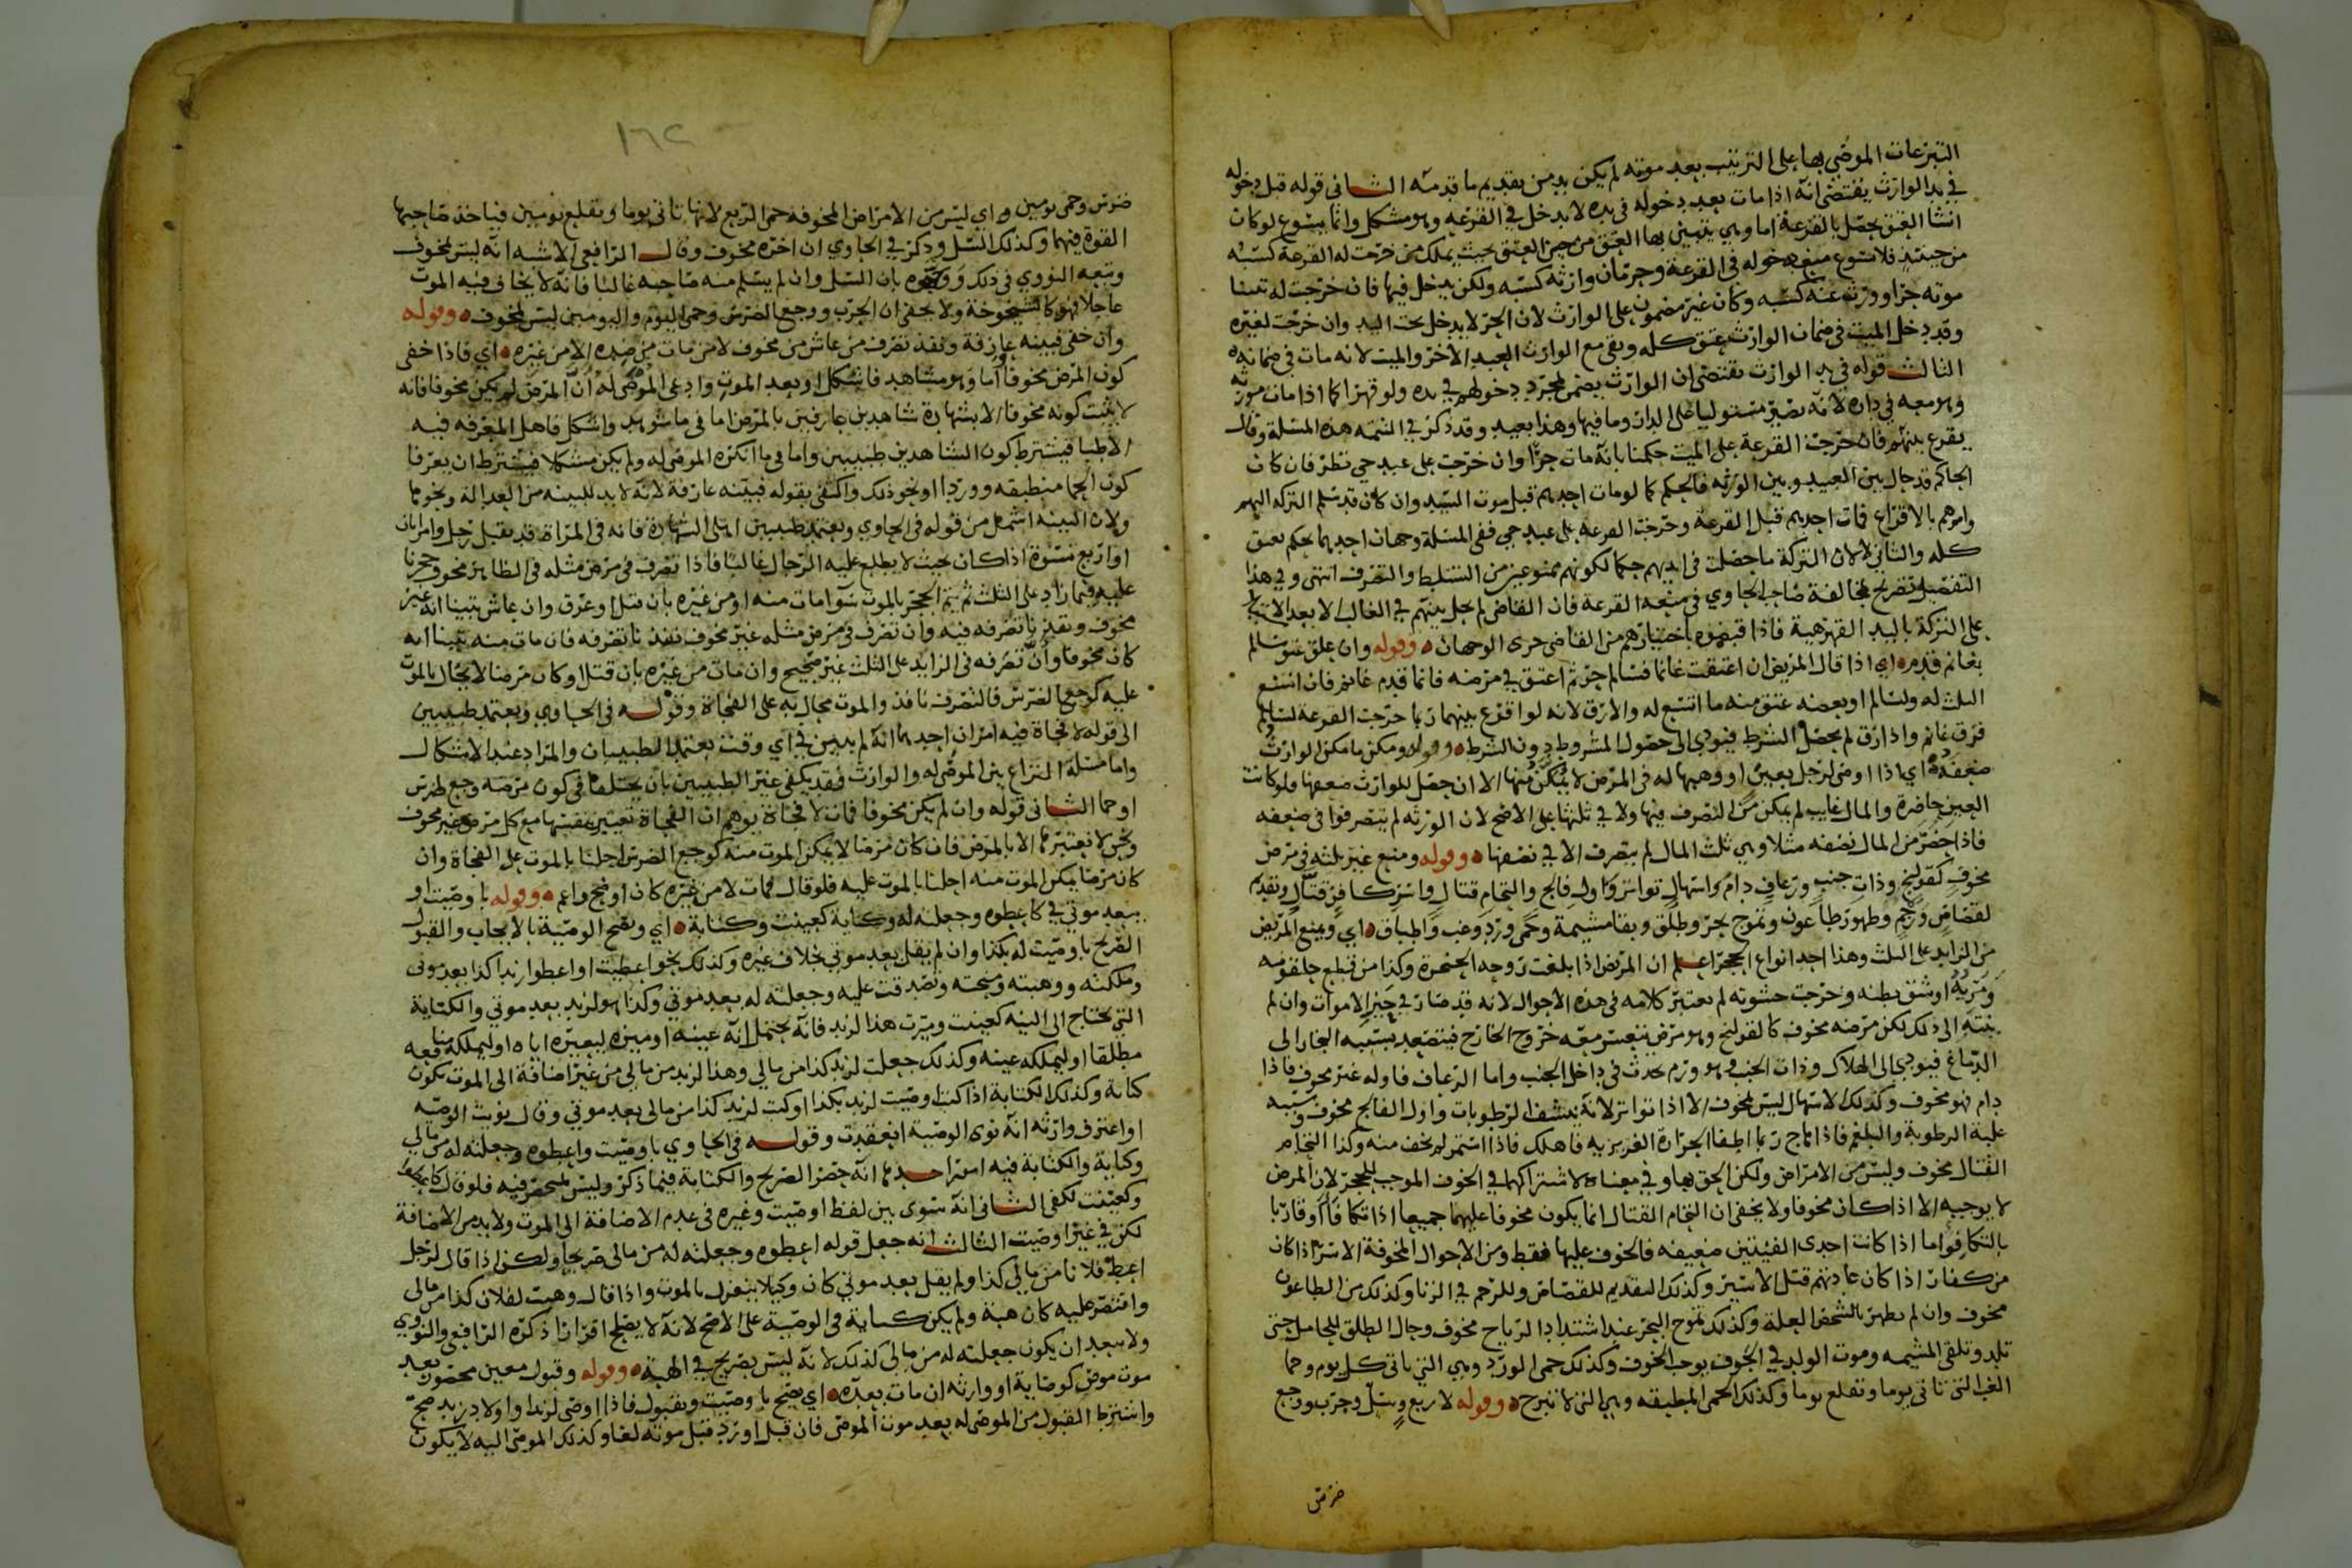 التبرعات الموصى بها على الترتيب بعد موته لم يكن بد من تقديم ما قدمته الثاني قوله قبل دخوله
في يد الوارث يقتضي انه اذا مات بعد دخوله في يده لا يدخل في القرعة وهو مشكل وانما يتسوغ لو كان
انشا العتق يحصل بالقرعة اما وهي يتبين بها العتق من حين العتق بحيث يملك من خرجت له القرعة كسبه
من حينئذ فلا يسوغ منع دخوله في القرعة وحرمان وارثه كسبه ولكن يدخل فيها فان خرجت له تبينا
موته حرا وورث عنه كسبه وكان غير مضمون على الوارث لان الحر لا يدخل تحت اليد وان خرجت لغيره
وقد دخل الميت في ضمان الوارث عتق كله وبقي مع الوارث العبد الاخر والميت لانه مات في ضمانه
الثالث قوله في يد الوارث يقتضي ان الوارث يضمن بمجرد دخولهم في يده ولو قهرا كما اذا مات مورثه
وهو معه في داره لانه يصير مستوليا على الدار وما فيها وهذا بعيد وقد ذكر في التتمة هذه المسئلة وقال
يقرع بينهم فان خرجت القرعة على الميت حكمنا بانه مات حرا وان خرجت على عبد حي نظر فان كان
الحاكم قد حال بين العبيد وبين الورثة فالحكم كما لو مات احدهم قبل موت السيد وان كان قد سلم التركة اليهم
وامرهم بالاقراع فمات احدهم قبل القرعة وخرجت القرعة على عبد حي ففي المسئلة وجهان احدهما يحكم بعتق
كله والثاني لا لان التركة ما حصلت في ايديهم حكما لكونهم ممنوعين من التسلط والتصرف انتهى وفي هذا
التفصيل تصريح بمخالفة صاحب الحاوي في منعه القرعة فان القاضي لم يحل بينهم في الغالب الا بعد
على التركة باليد القهرية فاذا قبضوه باختيارهم من القاضي جرى الوجهان وقوله وان علق عتق سالم
بغانم قدم اي اذا قال المريض ان اعتقت غانما فسالم حر ثم اعتق في مرضه غانما قدم غانم فان اتسع
الثلث له ولسالم او بعضه عتق منه ما اتسع له والا رق لانه لو اقرع بينهما ربما خرجت القرعة لسالم
فرق غانم واذا رق لم يحصل الشرط فيودي الى حصول المشروط دون الشرط وقوله ومكن ما مكن الوارث
ضعفه اي اذا اوصى لرجل بعين او وهبها له في المرض لا يمكن منها الا ان حصل للوارث ضعفها فلو كانت
العين حاضرة والمال غايب لم يمكن من التصرف فيها ولا في ثلثها على الاصح لان الورثة لم يتصرفوا في ضعفه
فاذا حضر من المال نصفه مثلا وهي ثلث المال لم يتصرف الا في نصفها وقوله ومنع غير ثلثه في مرض
مخوف كقولنج وذات جنب ورعاف دام واسهال تواتر واول فالج والتحام قتال واسر كافر قتال وتقديم
لقصاص ورجم وظهور طاعون وتموج بحر وطلق وبقا مشيمة وحمى ورد وغب واطباق اي ويمنع المريض
من الزايد على الثلث وهذا احد انواع الحجر اعلم ان المريض اذا بلغت روحه الحنجرة وكذا من قطع حلقومه
ومريه او شق بطنه وخرجت حشوته لم يعتبر كلامه في هذه الاحوال لانه قد صار في حيز الاموات وان لم
ينته الى ذلك لكن مرضه مخوف كالقولنج وهو مرض يتعسر معه خروج الخارج فيتصعد بسببه البخار الى
الدماغ فيودي الى الهلاك وذات الجنب وهو ورم يحدث في داخل الجنب واما الرعاف فاوله غير مخوف فاذا
دام فهو مخوف وكذلك الاسهال ليس بمخوف الا اذا تواتر لانه ينشف الرطوبات واول الفالج مخوف وسببه
غلبة الرطوبة والبلغم فاذا هاج ربما اطفا الحرارة الغريزيه فاهلك فاذا استمر لم يخف منه وكذا التحام
القتال مخوف وليس من الامراض ولكن الحق بها وفي معناه لاشتراكهما في الخوف الموجب للحجر لان المرض
لا يوجبه الا اذا كان مخوفا ولا يخفى ان التحام القتال انما يكون مخوفا عليهما جميعا اذا تكافا او قاربا
بالتكافؤ اما اذا كانت احدى الفئتين ضعيفه فالخوف عليها فقط ومن الاحوال المخوفة الاسر اذا كان
من كفار اذا كان عادتهم قتل الاسير وكذلك التقديم للقصاص وللرجم في الزنا وكذلك من الطاعون
مخوف وان لم يظهر بالشخص العلة وكذلك تموج البحر عند اشتداد الرياح مخوف وحال الطلق للحامل حتى
تلد وتلقى المشيمه وموت الولد في الجوف يوجب الخوف وكذلك حمى الورد وهي التي تاتي كل يوم وحمى
الغب التي تاتي يوما وتقلع يوما وكذلك الحمى المطبقه وهي التي لا تبرح وقوله لا ربع وسل وجرب ووجع
ضرس
١٦٢
ضرس وحمى يومين اي ليس من الامراض المخوفة حمى الربع لانها تاتي يوما وتقلع يومين فياخذ صاحبها
القوة فيهما وكذلك السل وذكر في الحاوي ان اخره مخوف وقال الرافعي الاشبه انه ليس بمخوف
وتبعه النووي في ذلك ووجهوه بان السل وان لم يسلم منه صاحبه غالبا فانه لا يخاف فيه الموت
عاجلا فهو كالشيخوخة ولا يخفى ان الجرب ووجع الضرس وحمى اليوم واليومين ليس بمخوف وقوله
وان خفي فبينه عارفة ونفذ تصرف من عاش من مخوف لا من مات من ضده الا من غيره اي فاذا خفي
كون المرض مخوفا اما وهو مشاهد فاشكل او بعد الموت وادعى الموصى له ان المرض لم يكن مخوفا فانه
لا يثبت كونه مخوفا الا بشهادة شاهدين عارفين بالمرض اما في ما شوهد واشكل فاهل المعرفه فيه
الاطبا فيشترط كون الشاهدين طبيبين واما في ما انكره الموصى له ولم يكن مشكلا فيشترط ان يعرفا
كون الحما منطبقه ووردا او نحو ذلك واكتفى بقوله فبينه عارفة لانه لا بد للبينه من العدالة ونحوها
ولان البينه اشمل من قوله في الحاوي ويعتمد طبيبين اهلى الشهادة فانه في المراة قد يقبل رجل وامراتان
او اربع نسوة اذا كان بحيث لا يطلع عليه الرجال غالبا فاذا تصرف في مرض مثله في الظاهر مخوف حجرنا
عليه فيما زاد على الثلث ثم يتم الحجر بالموت سوا مات منه او من غيره بان قتل او غرق وان عاش تبينا انه غير
مخوف ونفذنا تصرفه فيه وان تصرف في مرض مثله غير مخوف نفذنا تصرفه فان مات منه تبينا انه
كان مخوفا وان تصرفه في الزايد على الثلث غير صحيح وان مات من غيره بان قتل او كان مرضا لا يحال بالموت
عليه كوجع الضرس فالتصرف نافذ والموت محال به على الفجاة وقوله في الحاوي ويعتمد طبيبين
الى قوله لا فجاة فيه امران احدهما انه لم يبين في اي وقت يعتمد الطبيبان والمراد عند الاشكال
واما مسئلة النزاع بين الموصى له والوارث فقد يكفي غير الطبيبين بان يختلفا في كون مرضه وجع ضرس
او حما الثاني قوله وان لم يكن مخوفا فمات لا فجاة يوهم ان الفجاة تعتبر بنفسها مع كل مرض غير مخوف
ونحن لا نعتبرها الا بالمرض فان كان مرضا لا يمكن الموت منه كوجع الضرس احلنا بالموت على الفجاة وان
كان مرضا يمكن الموت منه احلنا بالموت عليه فلو قال فمات لا من غيره كان اوضح واعم وقوله باوصيت او
ببعد موتي في كاعطوه وجعلته له وكناية كعينت وكتابة اي وتصح الوصية بالايجاب والقبول
الصريح باوصيت له بكذا وان لم يقل بعد موتي بخلاف غيره وكذلك نحو اعطيت او اعطوا زيدا كذا بعد موتي
وملكته ووهبته ومنحته وتصدقت عليه وجعلته له بعد موتي وكذا هو لزيد بعد موتي والكناية
التي تحتاج الى النيه كعينت وميزت هذا لزيد فانه يحتمل انه عينه او ميزه ليعيره اياه او ليملكه
مطلقا او ليملكه عينه وكذلك جعلت لزيد كذا من مالي وهذا لزيد من مالي من غير اضافة الى الموت يكون
كناية وكذلك الكتابة اذا كتب اوصيت لزيد بكذا او كتب لزيد كذا من مالي بعد موتي وقال نويت الوصيه
او اعترف وارثه انه نوى الوصية انعقدت وقوله في الحاوي باوصيت واعطوه وجعلته له من مالي
وكناية والكتابة فيه امور احدها انه حصر الصريح والكناية فيما ذكر وليس بمنحصر فيه فلو قال كاعطوه
وكعينت لكفى الثاني انه سوى بين لفظ اوصيت وغيره في عدم الاضافة الى الموت ولا بد من الاضافة
لكن في غير اوصيت الثالث انه جعل قوله اعطوه وجعلته له من مالي صريحا ولكن اذا قال لرجل
اعط فلانا من مالي كذا ولم يقل بعد موتي كان وكيلا ينعزل بالموت واذا قال وهبت لفلان كذا من مالي
واقتصر عليه كان هبة ولم يكن كناية في الوصية على الاصح لانه لا يصلح اقرارا ذكره الرافعي والنووي
ولا يبعد ان يكون جعلته له من مالي كذلك لانه ليس بصريح في الهبة وقوله وقبول معين محصور بعد
موت موص كوصاية او وارثه ان مات بعده اي يصح باوصيت وبقبول فاذا اوصى لزيد او اولاد زيد صح
واشترط القبول من الموصى له بعد موت الموصي فان قبل او رد قبل موته لغا وكذلك الموصى اليه لا يكون